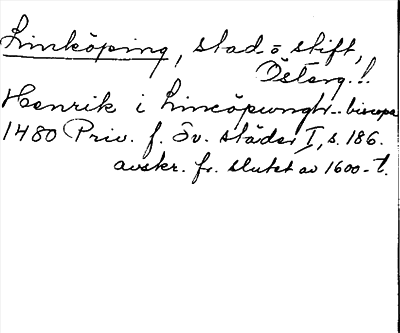 Linköping, stad o stift,
Österg.l.
Henrik i Lincöpungh - biscopa
1480 Priv. f. Sv. städer I, s. 186.
avskr. fr. slutet av 1600-t.